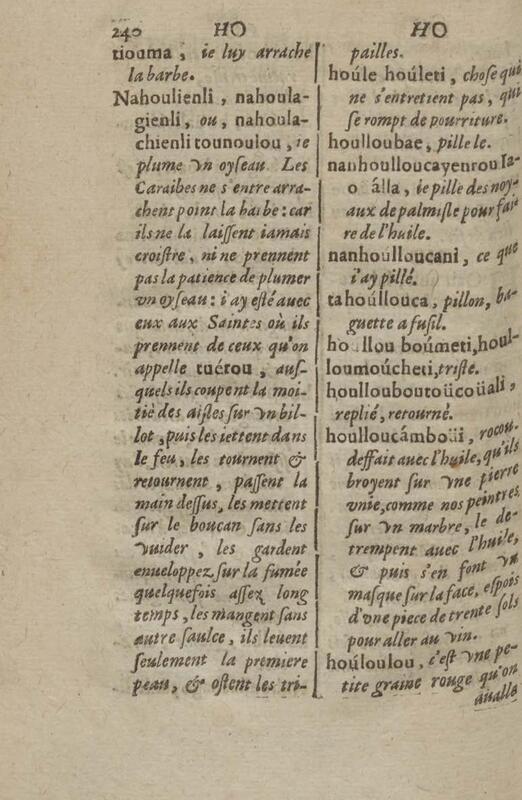 240 HO HO
tiouma, ie luy arrache
la barbe.
Nahoulienli, nahoula-
gienli, ou, nahoula-
chienli tounoulou, ie
plume vn oyseau. Les
Caraibes ne s'entre arra-
chent point la barbe: car
ils ne la laissent iamais
croistre, ni ne prennent
pas la patience de plumer
vn oyseau: i'ay esté auec
eux aux Saintes où ils
prennent de ceux qu'on
appelle tuérou, aus-
quels ils coupent la moi-
tié des aisles sur vn bil-
lot, puis les iettent dans
le feu, les tournent &
retournent, passent la
main dessus, les mettent
sur le boucan sans les
vuider, les gardent
enueloppez sur la fumée
quelquefois assez long
temps, les mangent sans
autre saulce, ils leuent
seulement la premiere
peau, & ostent les tri-
pailles.
houle houleti, chose qui
ne s'entretient pas, qui
se rompt de pourriture.
houlloubae, pille le.
nanhoulloucayenrou la-
o álla, ie pille des noy-
aux de palmiste pour fai
re de l'huile.
nanhoulloucani, ce que
i'ay pillé.
tahoúllouca, pillon, ba-
guette a fusil.
llou boúmeti, houl-
loumoúcheti, triste.
houllouboutoücoüali,
replié, retourné.
houlloucámboüi, rocou.
deffait auec l'huile, qu'ils
broyent sur vne pierre
vnie, comme nos peintres
sur vn marbre, le de-
trempent auec l'huile,
& puis s'en font vn
masque sur la face, espois
d'vne piece de trente sols
pour aller au vin.
houloulou, c'est vne pe-
tite graine rouge qu'on
aualle